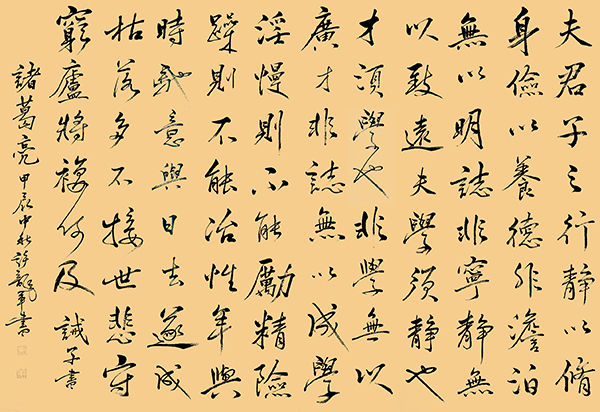 夫君子之行靜以脩
身儉以養德非澹泊
無以明誌非寧靜無
以致遠夫學須靜也
才須學也非學無以
廣才非誌無以成學
淫慢則不能勵精險
躁則不能冶性年與
時馳意與日去遂成
枯落多不接世悲守
窮廬將複何及 誡子書
諸葛亮 甲辰中秋許龍軍書